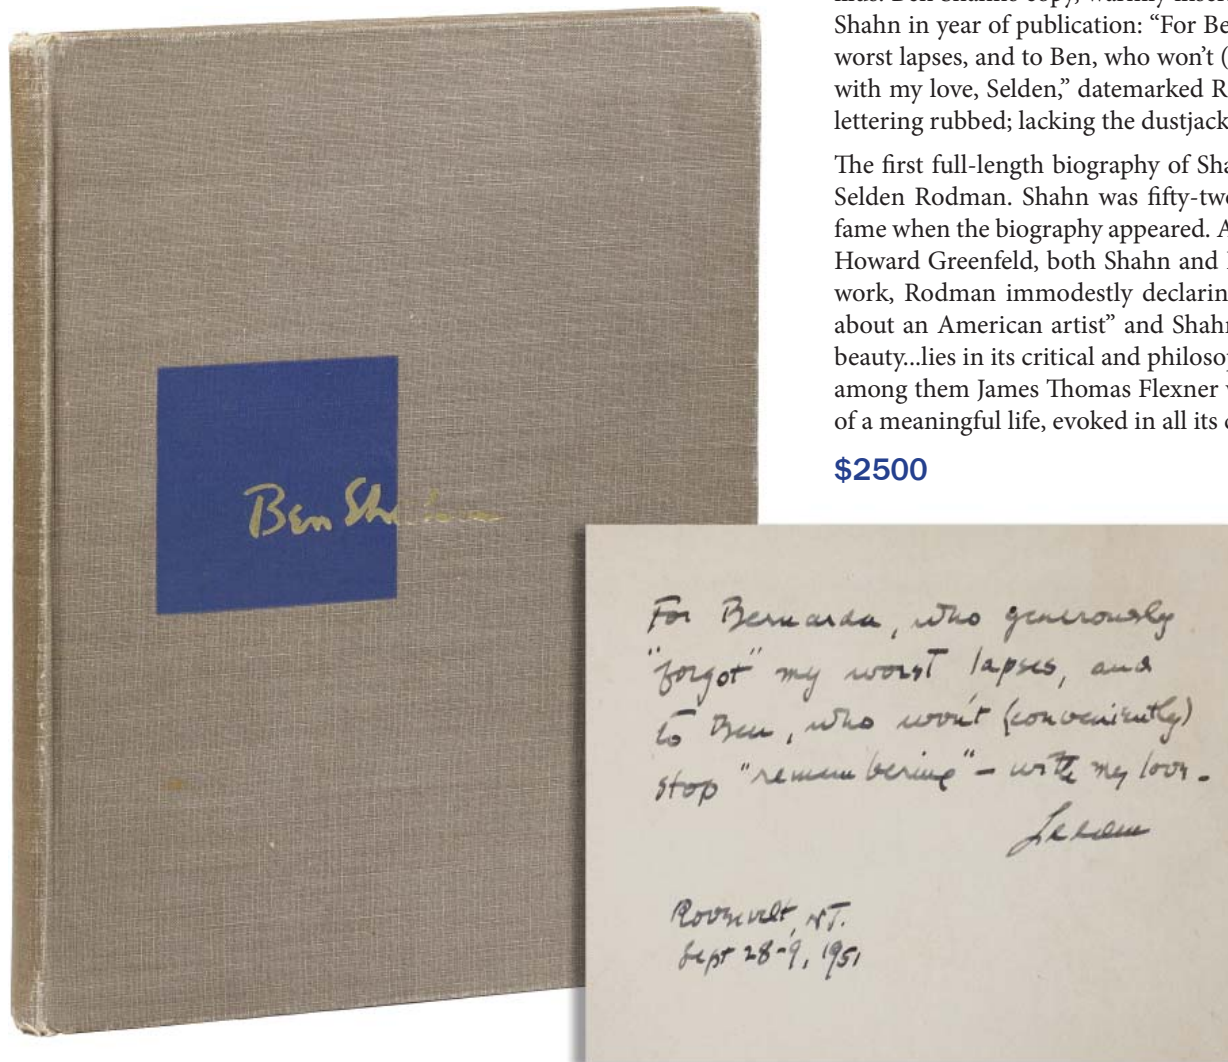 Shahn in year of publication: “For Be
worst lapses, and to Ben, who won’t (
with my love, Selden,” datemarked R
lettering rubbed; lacking the dustjack
The first full-length biography of Sha
Selden Rodman. Shahn was fifty-two
fame when the biography appeared. A
Howard Greenfeld, both Shahn and
work, Rodman immodestly declarin
about an American artist” and Shahn
beauty...lies in its critical and philosop
among them James Thomas Flexner
of a meaningful life, evoked in all its
$2500
Ben Sh
For Bernarda, who generously
"forgot" my worst lapses, and
to Ben, who won't (conveniently)
stop "remembering" – with my love –
Selden
Roosevelt, NJ.
Sept 28-9, 1951